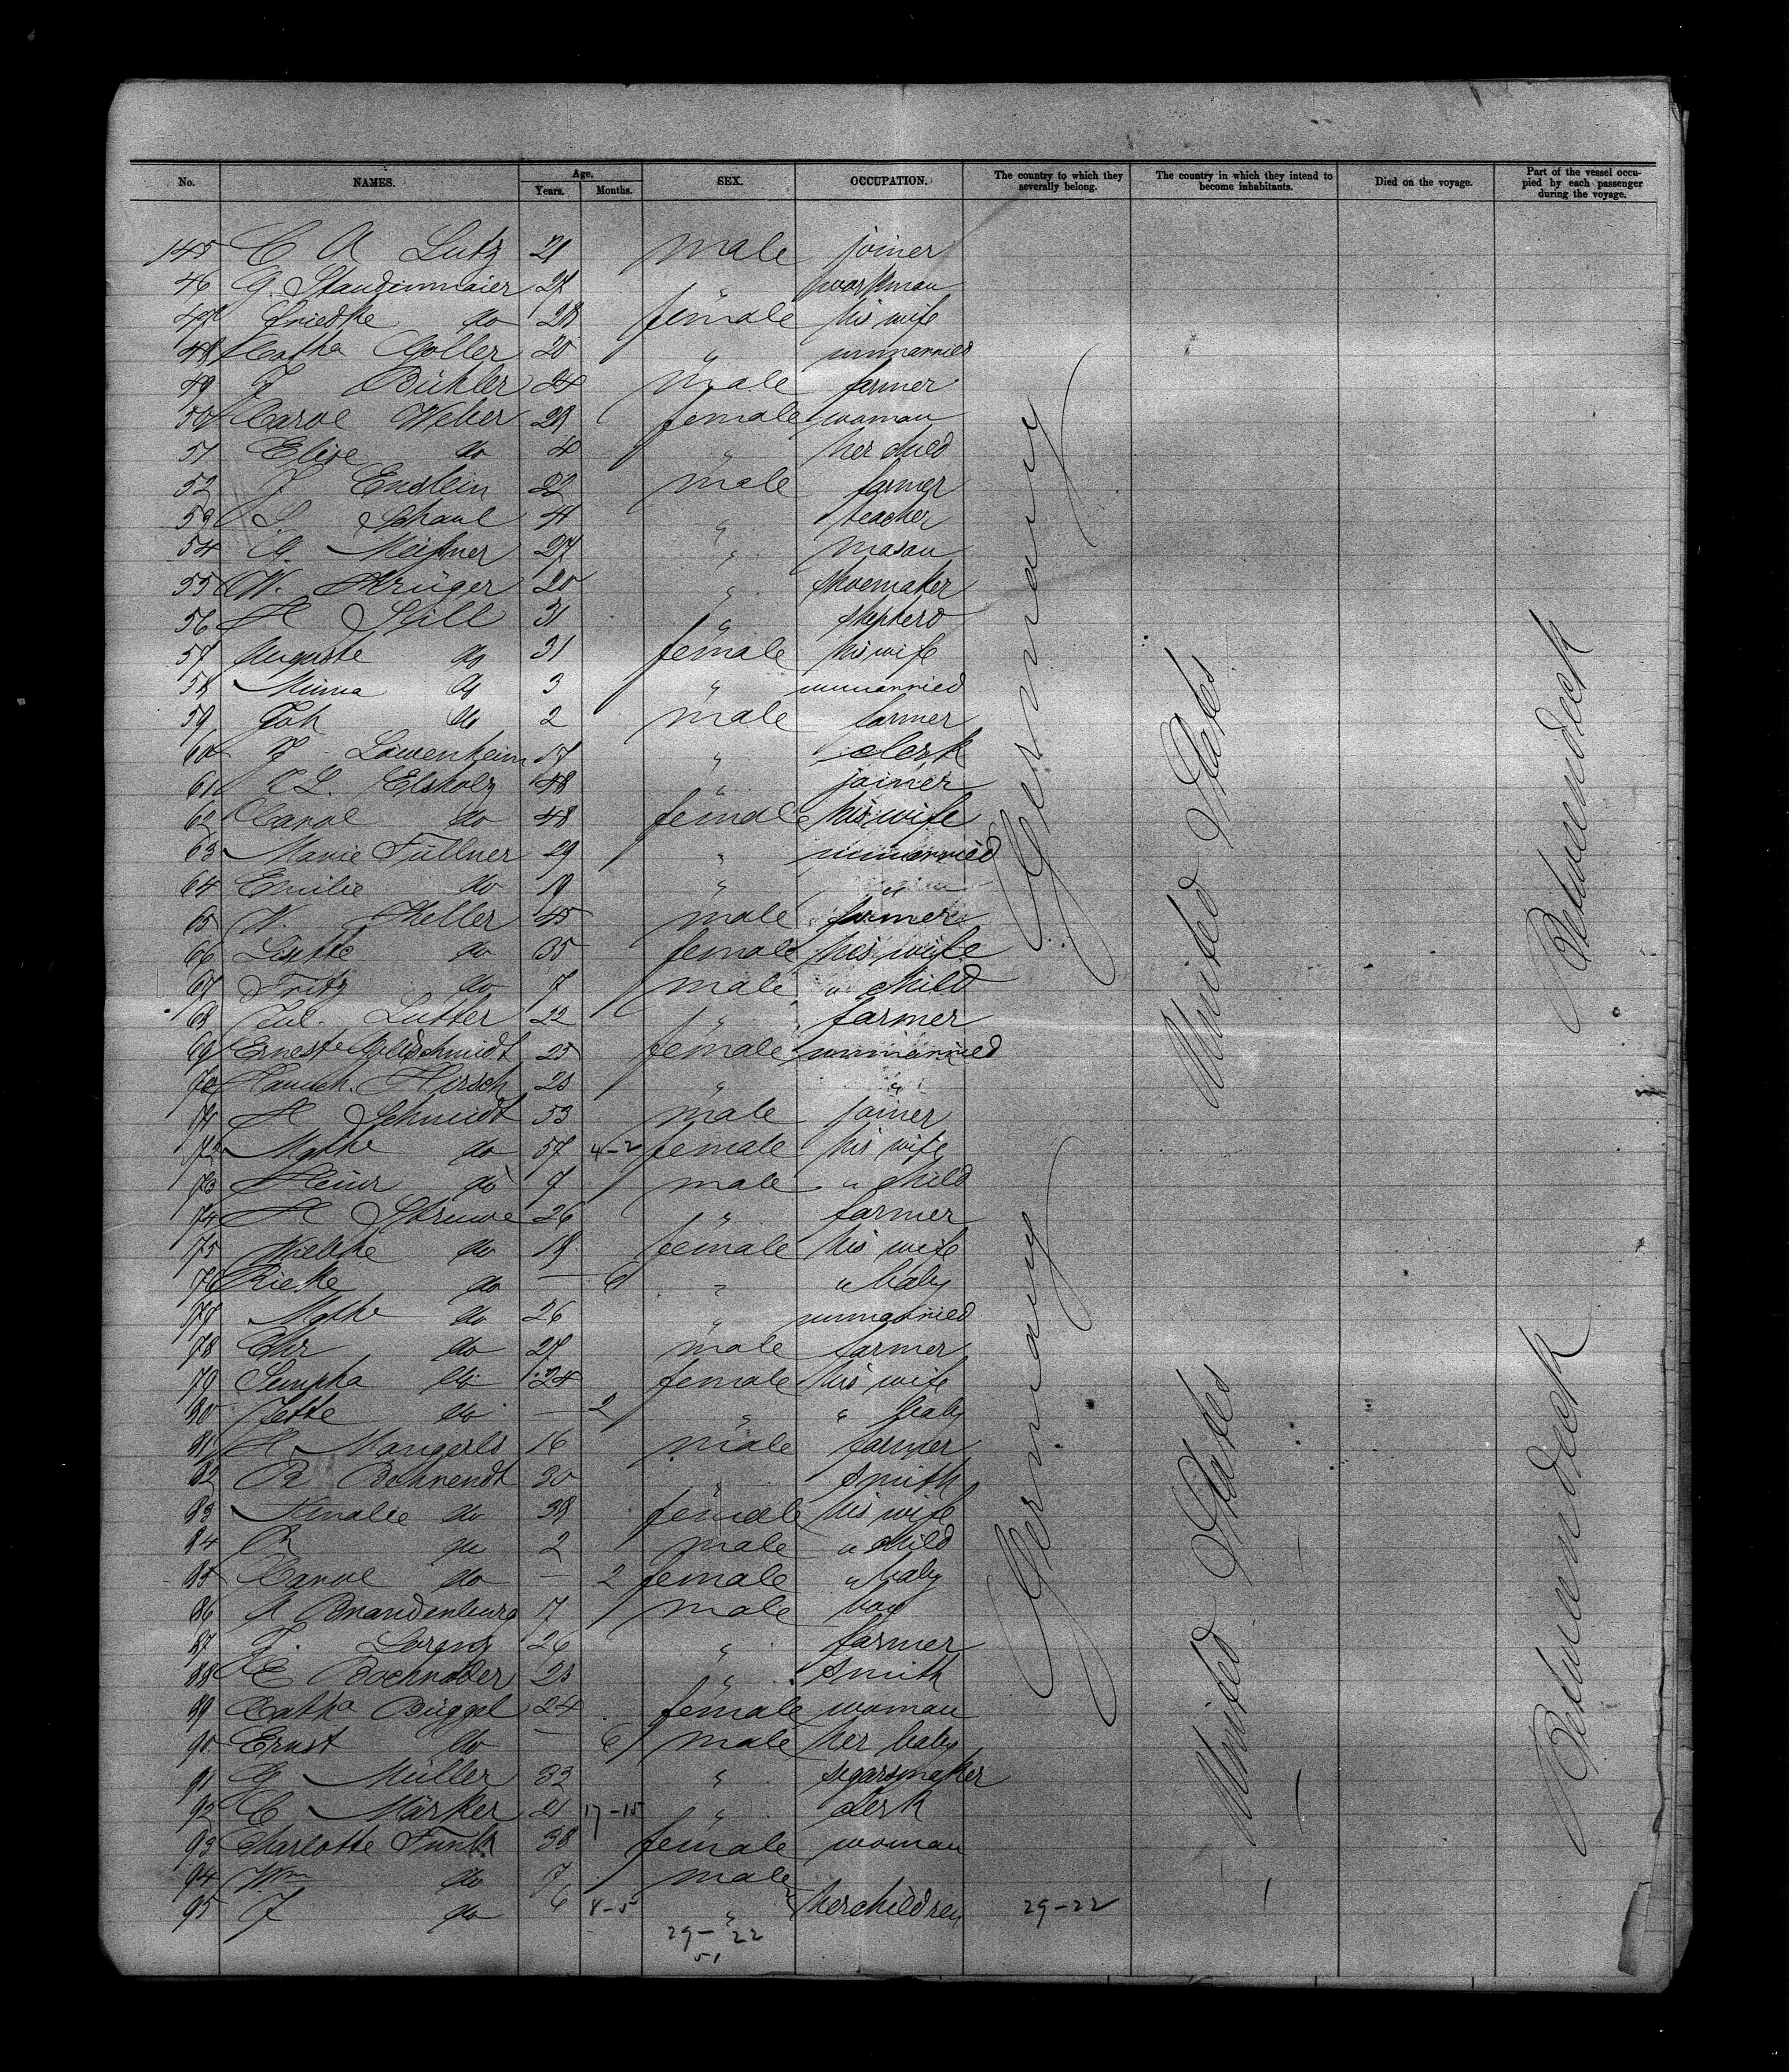 No. NAMES. Age. Years. Months. SEX. OCCUPATION. The country to which they severally belong. The country in which they intend to become inhabitants. Died on the voyage. Part of the vessel occupied by each passenger during the voyage.
145 C A Lutz 21 male joiner
46 G. Staudenmaier 27 " workman
47 Friedke do 28 female his wife
48 Catha Goller 20 " unmarried
49 J Bühler 24 male farmer
50 Carol Weber 28 female woman
51 Elise do 4 " her child
52 J Enslein 22 male farmer
53 L. Schaul 41 " teacher
54 G. Meißner 27 " mason
55 W. Krüger 20 " shoemaker
56 H Still 31 " shepherd
57 Auguste do 31 female his wife
58 Minna do 3 " unmarried
59 Joh do 2 male farmer
60 J Löwenheim 57 " clerk
61 C L. Elsholz 48 " joiner
62 Carol do 48 female his wife
63 Marie Füllner 29 " unmarried
64 Emilie do 19 " "
65 W. Keller 45 male farmer
66 Lisette do 35 female his wife
67 Fritz do 7 male " child
68 Jul. Lütter 22 " farmer
69 Erneste Goldschmidt 25 female unmarried
70 Hannch. Hirsch 23 " "
71 H Schmidt 53 male joiner
72 Mgthe do 57 4-2 female his wife
73 Heinr do 9 male " child
74 H Struwe 26 " farmer
75 Wiebke do 19 female his wife
76 Rieke do — 6 " " baby
77 Mgthe do 26 " unmarried
78 Chr do 27 male farmer
79 do 24 female his wife
80 Jette do — 2 " " baby
81 H Mangels 16 male farmer
82 R Behrendt 30 " smith
83 Amalie do 38 female his wife
84 R do 2 male " child
85 Carol do — 2 female " baby
86 A Brandenburg 17 male boy
87 J. Lorenz 26 " farmer
88 E Bochröder 23 " smith
89 Catha Büggel 24 female woman
90 Ernst do — 6 male her baby
91 G Müller 33 " segarsmaker
92 C Märker 21 17-15 " clerk
93 Charlotte Funk 38 female woman
94 Wm do 7 male
95 J do 6 8-5 " her children 29-22
29-22
51
Germany
Germany
United States
United States
Betweendeck
Betweendeck